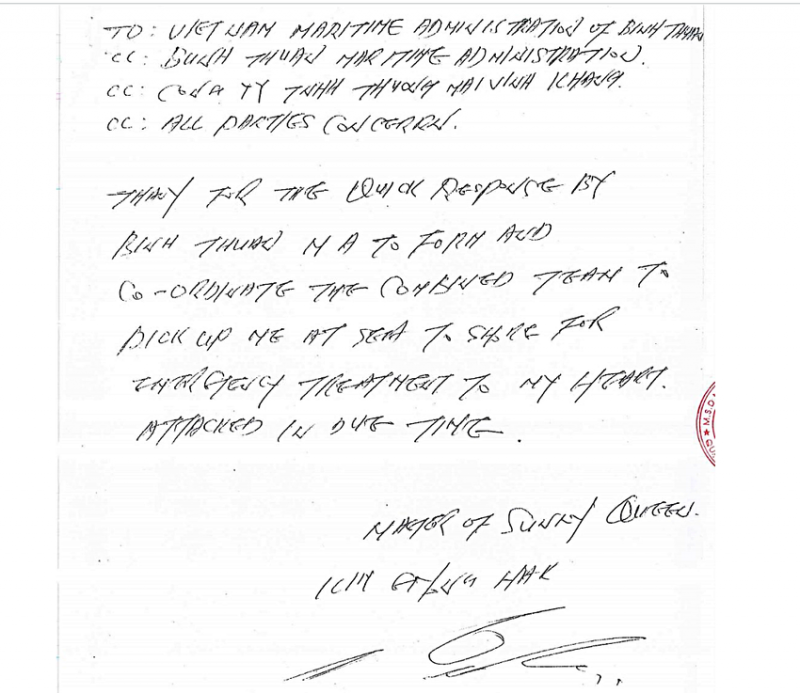 TO: VIETNAM MARITIME ADMINISTRATION of BINH THUAN
CC: BINH THUAN MARITIME ADMINISTRATION.
CC: CONG TY TNHH THUONG MAI VINH KHANG.
CC: ALL PARTIES CONCERRN.
FOR THE QUICK RESPONSE BY
BINH THUAN M A TO FORM AND
CO-ORDINATE THE COMBINED TEAM TO
PICK UP ME AT SEA TO SHORE FOR
EMERGENCY TREATMENT TO MY HEART.
ATTACKED IN DUE TIME.
MASTER OF SUNNY QUEEN.
KIM HAK
M.S.D.